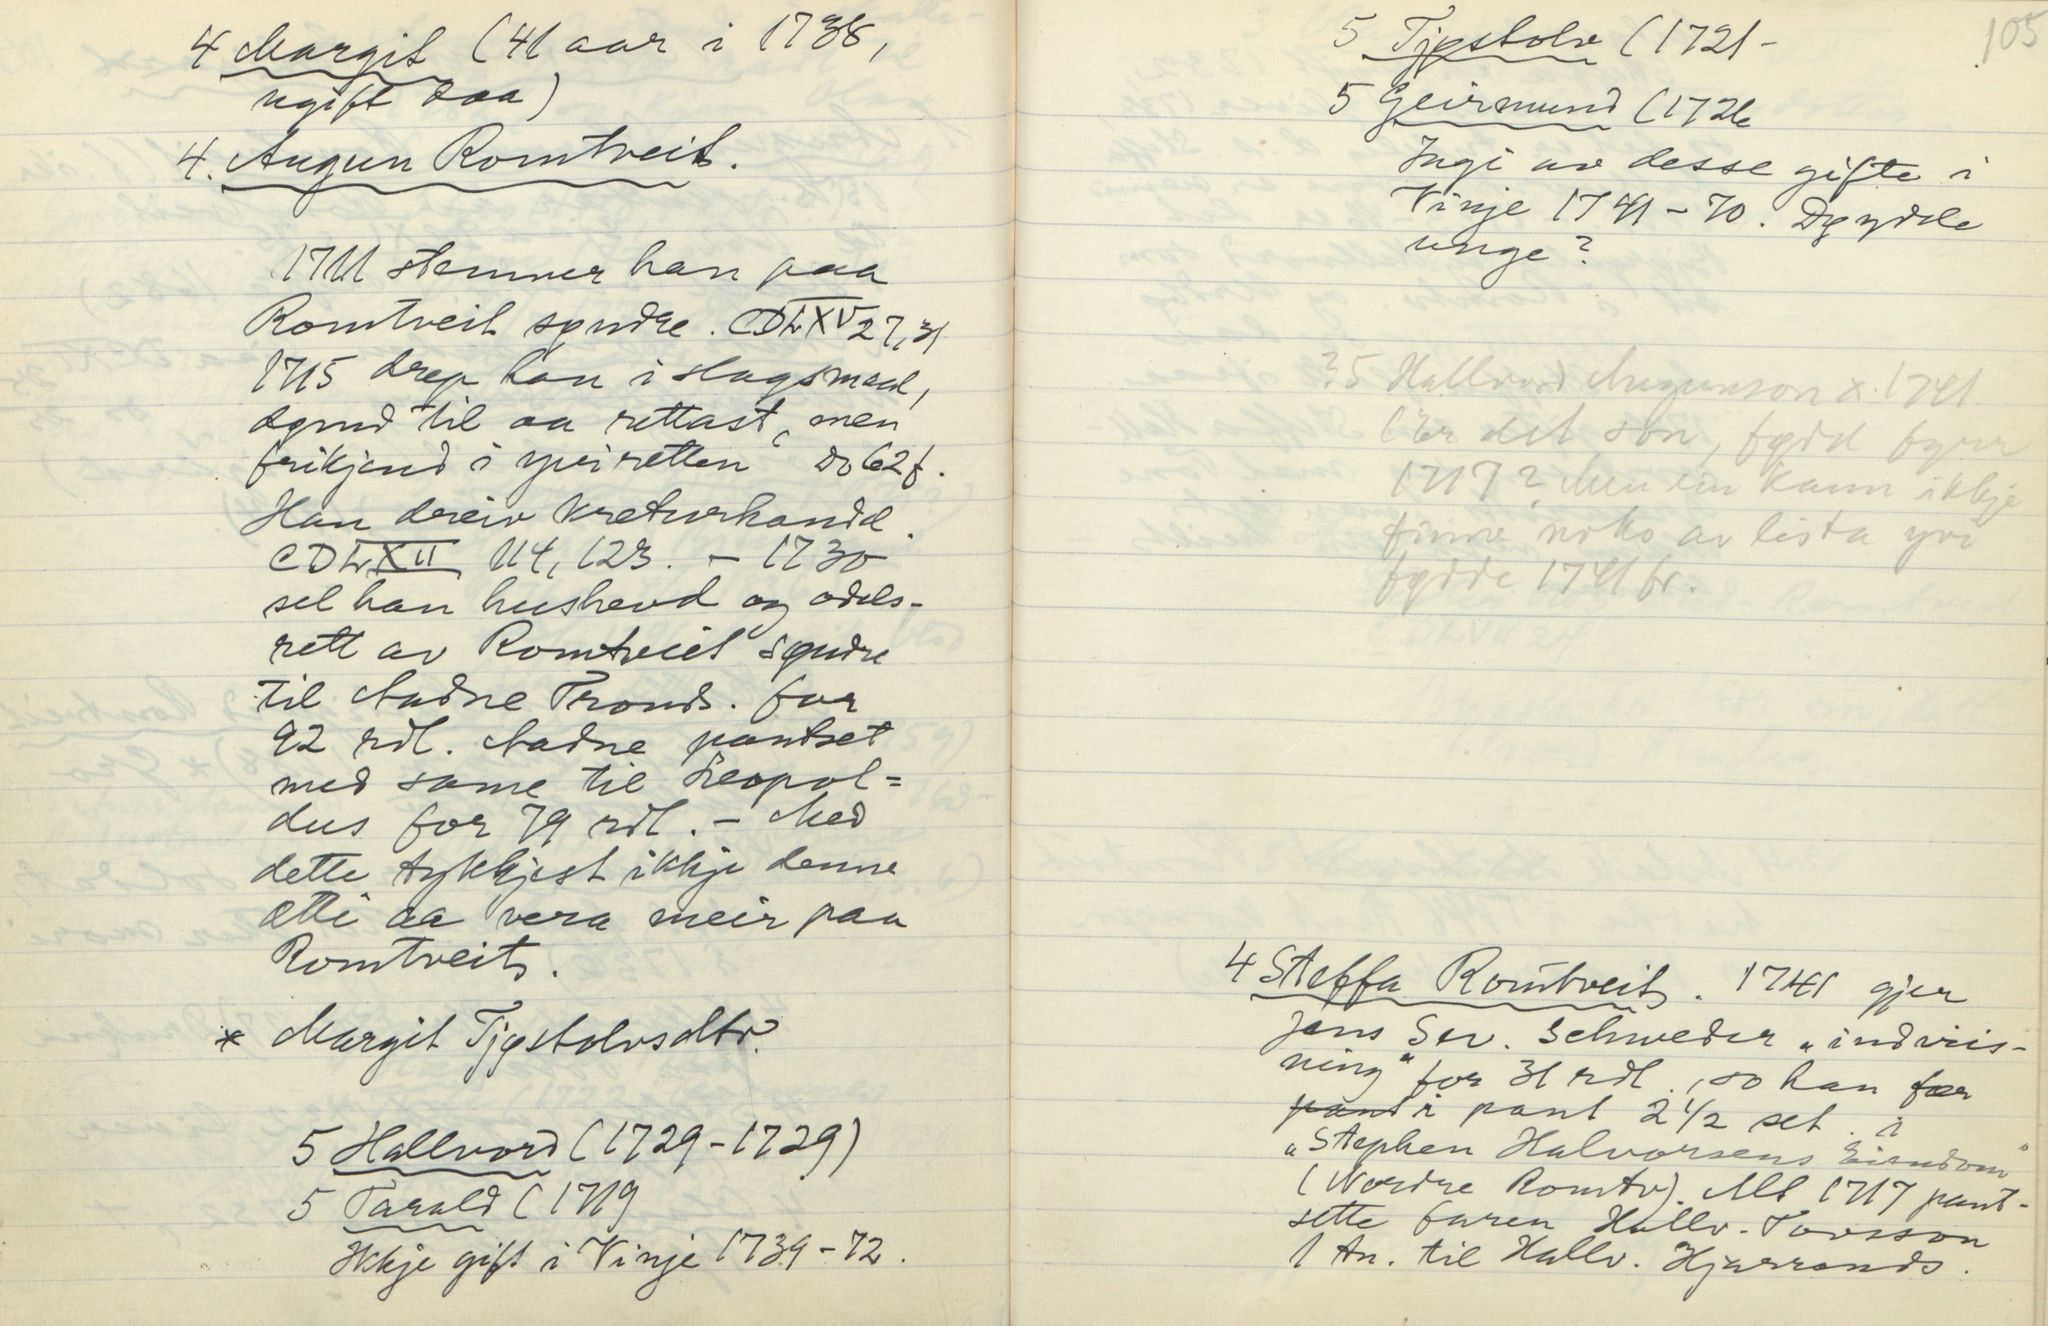 4 Margit (41 aar i 1738,
ugift daa)
4. Augun Romtveit.
1711 stemner han paa
Romtveit syndre. CDLXV 27, 31
1715 drep han i slagsmaal,
dømd til aa rettast, men
frikjend i yviretten Do 62 f.
Han dreiv kreturhandel.
CDLXII 114, 123. – 1730
sel han hushevd og odels-
rett av Romtveit søndre
til Aadne Tronds. for
92 rdl. Aadne pantset
med same til Leopol=
dus for 79 rdl. – Med
dette tykkjest ikkje denne
ætti aa vera meir paa
Romtveit.
x Margit Tjøstolvsdtr.
5 Hallvord (1729-1729)
5 Tarald (1719
Ikkje gift i Vinje 1739-72.
105
5 Tjøstolv (1721 -
5 Geirmund (1726
Ingi av desse gifte i
Vinje 1741-70. Døydde
unge?
? 5 Hallvord Augunson x. 1741
(Er det son, fødd fyrr
1717? Men ein kann ikkje
finne noko av lista yvi
fødde 1741 fr.
4 Steffa Romtveit. 1741 gjer
Jens Sev. Schweder „indviis-
ning" for 31 rdl., so han fær
pant i pant 2 1/2 set. i
„Stephen Halvorsens Eiendom"
(Nordre Romtv). Alt 1717 pant-
sette faren Hallv. Tovsson
1 tn. til Hallv. Hjarrands.